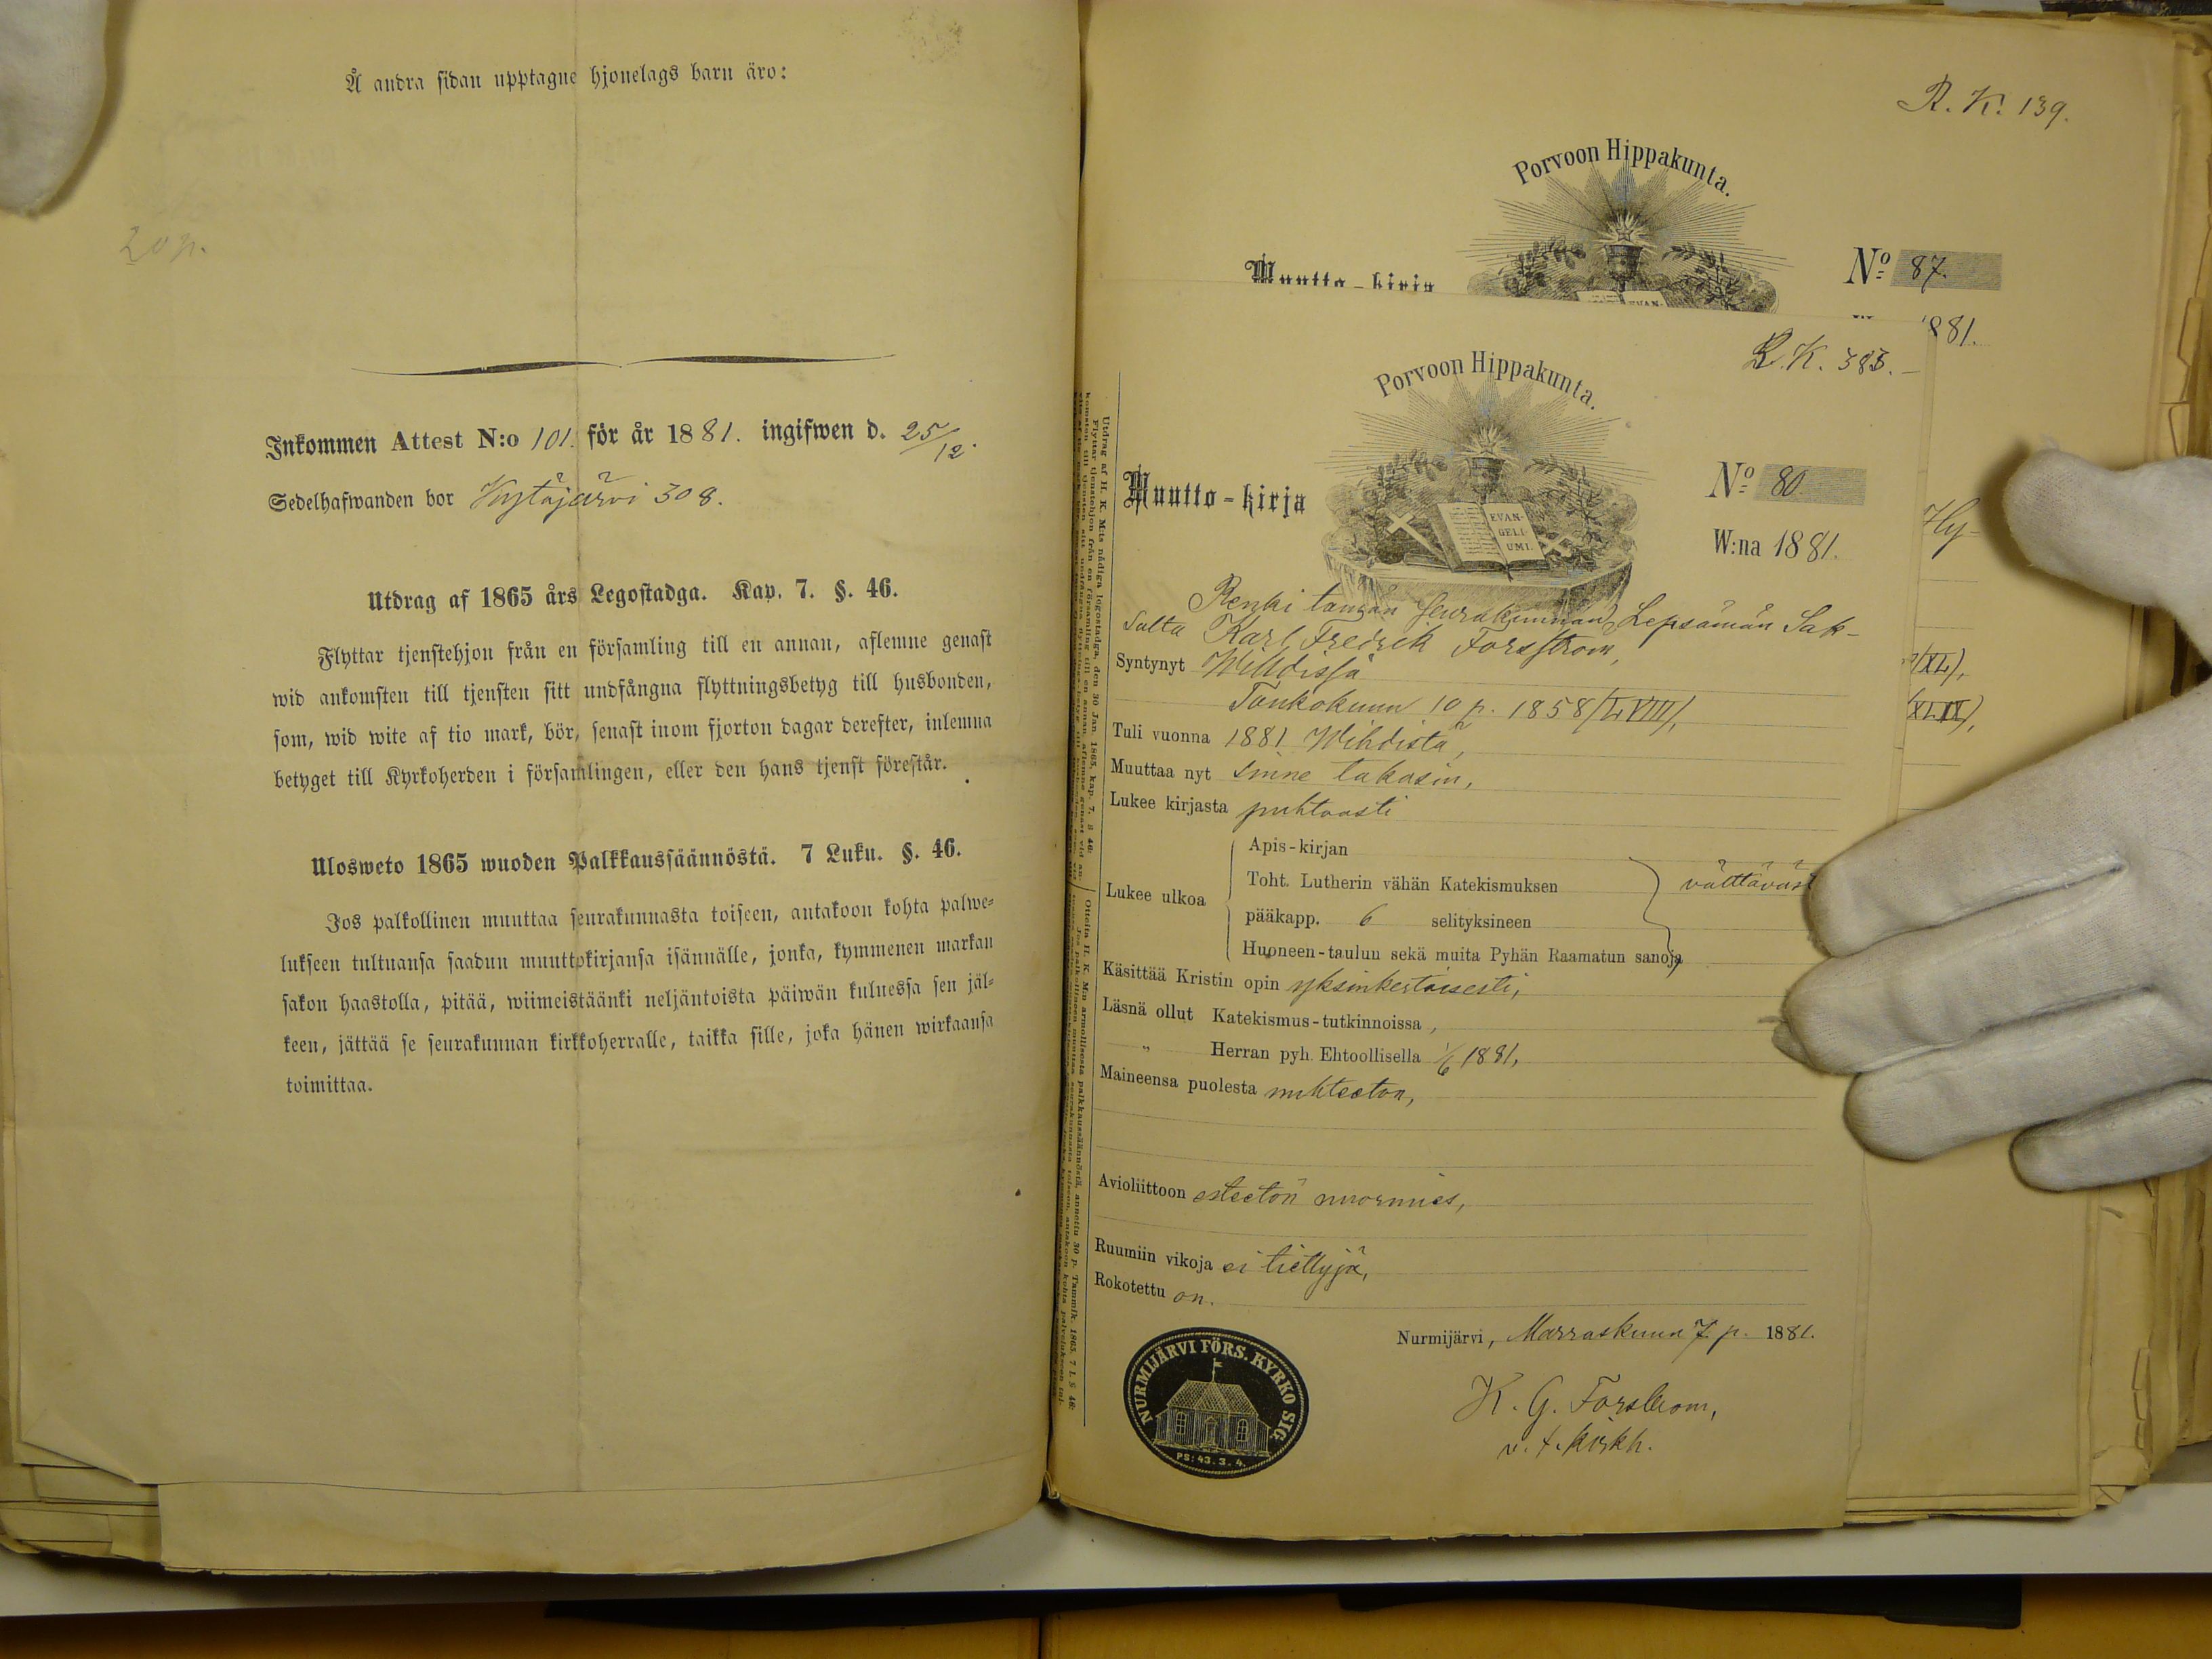 Å andra sidan upptagne hjonelags barn äro:
20 p.
Inkommen Attest N:o 101. för år 1881. ingifwen d. 25/12.
Sedelhafwanden bor Kytäjärvi 308.
Utdrag af 1865 års Legostadga. Kap. 7. §. 46.
Flyttar tjenstehjon från en församling till en annan, aflemne genast
wid ankomsten till tjensten sitt undfångna flyttningsbetyg till husbonden,
som, wid wite af tio mark, bör, senast inom fjorton dagar derefter, inlemna
betyget till Kyrkoherden i församlingen, eller den hans tjenst förestår.
Ulosweto 1865 wuoden Palkkaussäännöstä. 7 Luku. §. 46.
Jos palkollinen muuttaa seurakunnasta toiseen, antakoon kohta palwe-
lukseen tultuansa saadun muuttokirjansa isännälle, jonka, kymmenen markan
sakon haastolla, pitää, wiimeistäänki neljäntoista päiwän kuluessa sen jäl-
keen, jättää se seurakunnan kirkkoherralle, taikka sille, joka hänen wirkaansa
toimittaa.
R. K. 139.
Porvoon Hippakunta.
Muutto-kirja
No 87.
1881.
R. K. 383.
Porvoon Hippakunta.
Muutto-kirja
EVAN-
GELI-
UMI.
No 80
W:na 1881.
Hy-
Renki tämän seurakunnan, Lepsämän Sak-
salta Karl Fredrik Forsström,
Syntynyt Wihdissä
Toukokuun 10 p. 1858 (LVIII),
(XL),
(XLIX),
Tuli vuonna 1881 Wihdistä,
Muuttaa nyt sinne takasin,
Lukee kirjasta puhtaasti
Lukee ulkoa
Apis-kirjan
Toht. Lutherin vähän Katekismuksen
pääkapp. 6 selityksineen
Huoneen-taulun sekä muita Pyhän Raamatun sanoja
Käsittää Kristin opin yksinkertaisesti,
Läsnä ollut Katekismus-tutkinnoissa,
„ Herran pyh. Ehtoollisella 1/6 1881,
Maineensa puolesta nuhteeton,
Avioliittoon esteetön nuormies,
Ruumiin vikoja ei tiettyjä,
Rokotettu on.
Nurmijärvi, Marraskuun 7. p. 1881.
K. G. Forsström,
v. t. kirkh.
NURMIJÄRVI FÖRS. KYRKO SIG.
PS: 43. 3. 4.